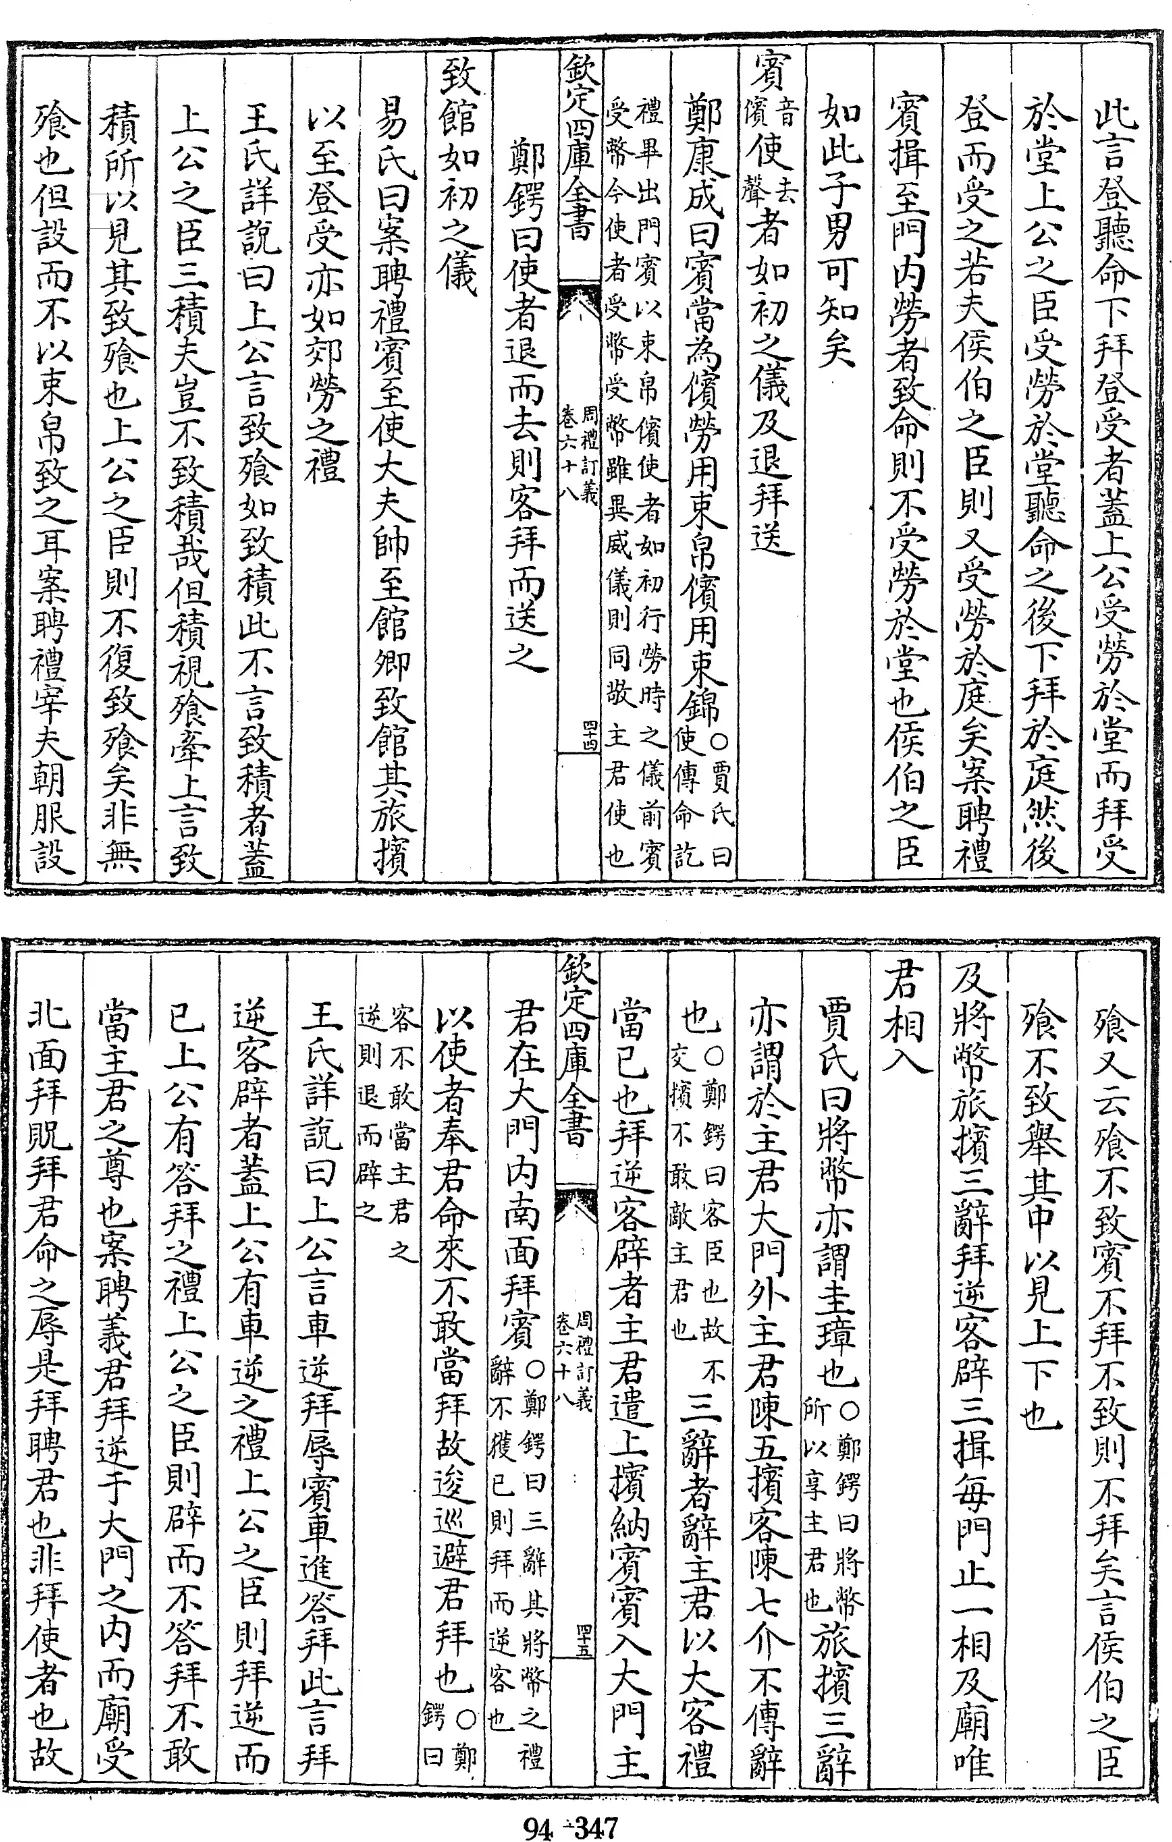 此言登聽命下拜登受者蓋上公受勞於堂而拜受
於堂上公之臣受勞於堂聽命之後下拜於庭然後
登而受之若夫侯伯之臣則又受勞於庭矣案聘禮
賓揖至門内勞者致命則不受勞於堂也侯伯之臣
如此子男可知矣
賓音儐使去聲者如初之儀及退拜送
鄭康成曰賓當為儐勞用束帛儐用束錦○賈氏曰使傳命訖
禮畢出門賓以束帛儐使者如初行勞時之儀前賓
受幣今使者受幣受幣雖異威儀則同故主君使也
欽定四庫全書 周禮訂義卷六十八 四十四
鄭鍔曰使者退而去則客拜而送之
致館如初之儀
易氏曰案聘禮賓至使大夫帥至館卿致館其旅擯
以至登受亦如郊勞之禮
王氏詳說曰上公言致飱如致積此不言致積者蓋
上公之臣三積夫豈不致積哉但積視飱牽上言致
積所以見其致飱也上公之臣則不復致飱矣非無
飱也但設而不以束帛致之耳案聘禮宰夫朝服設
飱又云飱不致賓不拜不致則不拜矣言侯伯之臣
飱不致舉其中以見上下也
及將幣旅擯三辭拜逆客辟三揖每門止一相及廟唯
君相入
賈氏曰將幣亦謂圭璋也○鄭鍔曰將幣所以享主君也旅擯三辭
亦謂於主君大門外主君陳五擯客陳七介不傳辭
也○鄭鍔曰客臣也故不交擯不敢敵主君也三辭者辭主君以大客禮
當已也拜逆客辟者主君遣上擯納賓賓入大門主
欽定四庫全書 周禮訂義卷六十八 四十五
君在大門内南面拜賓○鄭鍔曰三辭其將幣之禮辭不獲已則拜而逆客也
以使者奉君命來不敢當拜故逡巡避君拜也○鄭鍔曰
客不敢當主君之
逆則退而辟之
王氏詳說曰上公言車逆拜辱賓車進答拜此言拜
逆客辟者蓋上公有車逆之禮上公之臣則拜逆而
已上公有答拜之禮上公之臣則辟而不答拜不敢
當主君之尊也案聘義君拜逆于大門之内而廟受
北面拜貺拜君命之辱是拜聘君也非拜使者也故
94-347